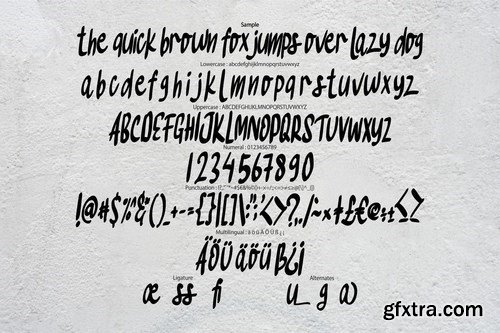 Sample
the quick brown fox jumps over lazy dog
Lowercase : abcdefghijklmnopqrstuvwxyz
abcdefghijklmnopqrstuvwxyz
Uppercase : ABCDEFGHIJKLMNOPQRSTUVWXYZ
ABCDEFGHIJKLMNOPQRSTUVWXYZ
Numeral : 0123456789
1234567890
Punctuation :
!@#$%^&()_+-={}[]\:;'<>?,./|~×±£€®¢±<>
Multilingual : ä ö ü Ä Ö Ü ß ¿ ¡
ÄÖÜ äöü ß¿¡
Ligature Alternates
æ ss fi u g a
gfxtra.com